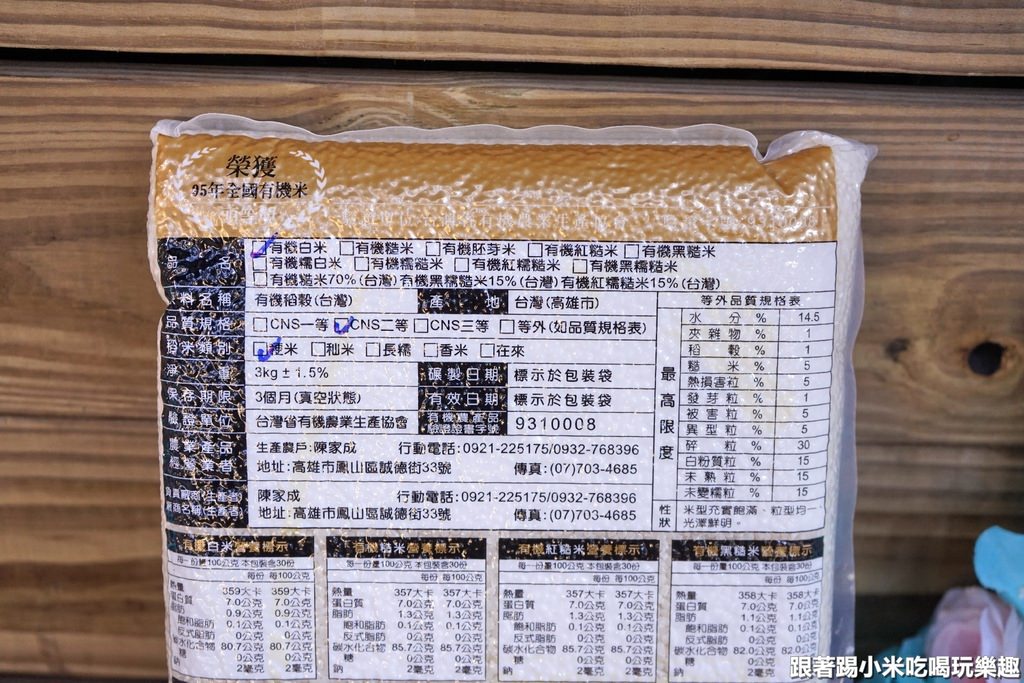 榮獲
95年全國有機米
品 名
☑有機白米 □有機糙米 □有機胚芽米 □有機紅糙米 □有機黑糙米
□有機糯白米 □有機糯糙米 □有機紅糯糙米 □有機黑糯糙米
□有機糙米70%(台灣)有機黑糯糙米15%(台灣)有機紅糯糙米15%(台灣)
料名稱 有機稻穀(台灣) 產 地 台灣(高雄市)
品質規格 □CNS一等 ☑CNS二等 □CNS三等 □等外(如品質規格表)
稻米種類 ☑稉米 □秈米 □長糯 □香米 □在來
淨 重 3kg±1.5% 碾製日期 標示於包裝袋
保存期限 3個月(真空狀態) 有效日期 標示於包裝袋
驗證單位 台灣省有機農業生產協會 有機農產品驗證證書字號 9310008
農業產品經營業者
生產農戶:陳家成 行動電話:0921-225175/0932-768396
地址:高雄市鳳山區誠德街33號 傳真:(07)703-4685
負責廠商(生產者)
廠商名稱(生產者)
陳家成 行動電話:0921-225175/0932-768396
地址:高雄市鳳山區誠德街33號 傳真:(07)703-4685
等外品質規格表
最高限度
水 分 % 14.5
夾雜物 % 1
稻 穀 % 1
糙 米 % 5
熱損害粒 % 5
發芽粒 % 1
被害粒 % 5
異型粒 % 5
碎 粒 % 30
白粉質粒 % 15
未熟粒 % 15
未變糯粒 % 15
性狀 米型充實飽滿、粒型均一、光澤鮮明。
有機白米營養標示
每一份量100公克 本包裝含30份
每份 每100公克
熱量 359大卡 359大卡
蛋白質 7.0公克 7.0公克
脂肪 0.9公克 0.9公克
飽和脂肪 0.1公克 0.1公克
反式脂肪 0公克 0公克
碳水化合物 80.7公克 80.7公克
糖 0公克 0公克
鈉 2毫克 2毫克
有機糙米營養標示
每一份量100公克 本包裝含30份
每份 每100公克
熱量 357大卡 357大卡
蛋白質 7.0公克 7.0公克
脂肪 1.3公克 1.3公克
飽和脂肪 0.1公克 0.1公克
反式脂肪 0公克 0公克
碳水化合物 85.7公克 85.7公克
糖 0公克 0公克
鈉 2毫克 2毫克
有機紅糙米營養標示
每一份量100公克 本包裝含30份
每份 每100公克
熱量 357大卡 357大卡
蛋白質 7.0公克 7.0公克
脂肪 1.3公克 1.3公克
飽和脂肪 0.1公克 0.1公克
反式脂肪 0公克 0公克
碳水化合物 85.7公克 85.7公克
糖 0公克 0公克
鈉 2毫克 2毫克
有機黑糙米營養標示
每一份量100公克 本包裝含30份
每份 每100公克
熱量 358大卡 358大卡
蛋白質 7.0公克 7.0公克
脂肪 1.1公克 1.1公克
飽和脂肪 0.1公克 0.1公克
反式脂肪 0公克 0公克
碳水化合物 82.0公克 82.0公克
糖 0公克 0公克
鈉 2毫克 2毫克
跟著踢小米吃喝玩樂趣